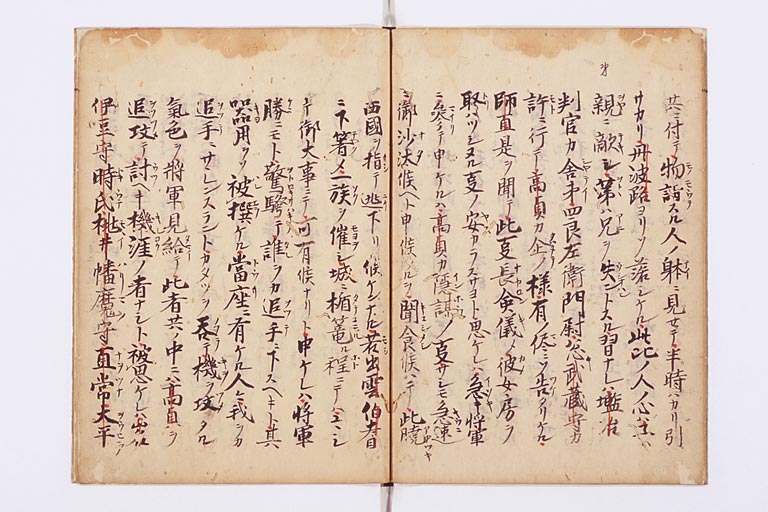 共ニ付テ物詣スル人ノ躰ニ見セテ半時ハカリ引
サカリ丹波路ヨリソ落シケル此比ノ人ノ心
親ニ敵シ弟ハ兄ヲ失ントスル習ナレハ塩冶
判官カ舎弟四良左衛門尉忩武蔵守カ
許ニ行テ高貞カ企ノ様有ノ侭ニソ告タリケル
師直是ヲ聞テ此事長僉儀シテ彼女房ヲ
取ハツシヌル事ノ安カラスサヨト思ケレハ急キ将軍
ニ参テ申ケルハ高貞カ隠謀ノ事サシモ急速
ニ御沙汰候ヘト申候ツルヲ聞食候ハテ此暁
西國ヲ指テ逃下リ候ケンナル若出雲伯耆
ニ下著シテ一族ヲ催シ城ニ楯篭ル程ニテ
御大事ニテ可有候ナリト申ケレハ将軍
勝ニモト驚騒テ誰ヲカ追手ニ下スヘキト其
器用ヲソ被撰ケル當座ニ有ケル人々我ヲカ
追手ニサレンスラントカタツヲ呑テ機ヲ攻タル
氣色ヲ将軍見給テ此者共ノ中ニハ高貞ヲ
追攻テ討ヘキ機涯ノ者ナシト被思ケレハ
伊豆守時氏桃井幡魔守直常大平